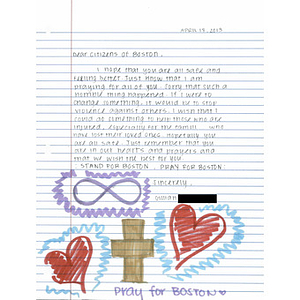 April 19, 2013
Dear Citizens of Boston,
I hope that you are all safe and
feeling better. Just know that I am
praying for all of you. Sorry that such a
horrible thing happened. If I were to
change something, it would be to stop
violence against others. I wish that I
could do something to help those who are
injured, especially for the families who
have lost their loved ones. Hopefully you
are all safe. Just remember that you
are in our hearts and prayers and
that we wish the best for you.
STAND FOR BOSTON. PRAY FOR BOSTON!
Sincerely,
Pray for BOSTON